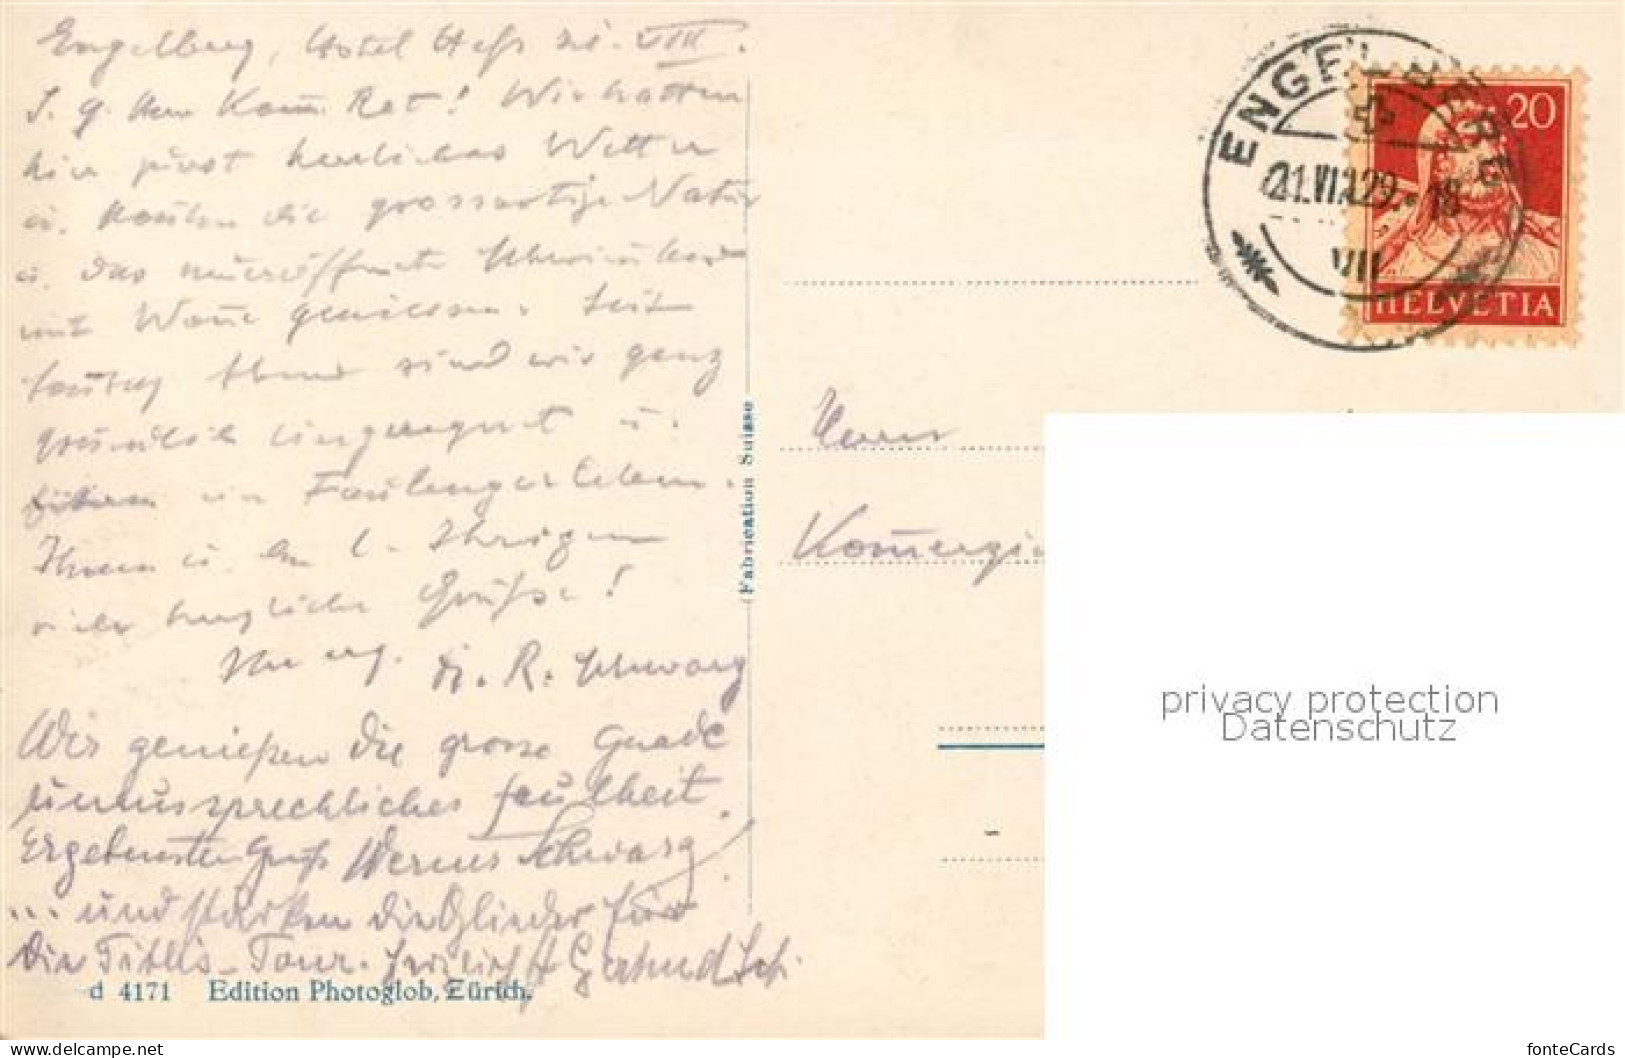 Engelberg, Hotel Hess 21. VIII.
S. g. Herr Kom. Rat! Wir hatten
hier meist herrliches Wetter
u. konnten die grossartige Natur
u. das
mit Wonne geniessen. Seit
sind wir ganz
gründlich eingeregnet u.
führen ein Faulenzerleben.
Ihnen u. den l. Ihrigen
viele herzliche Grüsse!
Ihr erg. Dr. R. Schwarz
Wir genießen die grosse Gnade
unaussprechlicher Faulheit.
Ergebensten Gruß Werner Schwarz
... und stärken die Glieder für
die Titlis-Tour. Gertrud Sch.
d 4171 Edition Photoglob, Zürich.
(Fabrication Suisse
ENGELBERG
21.VIII.29.-18
VII
20
HELVETIA
Herrn
Komerzi
privacy protection
Datenschutz
https://www.delcampe.net
fonteCards